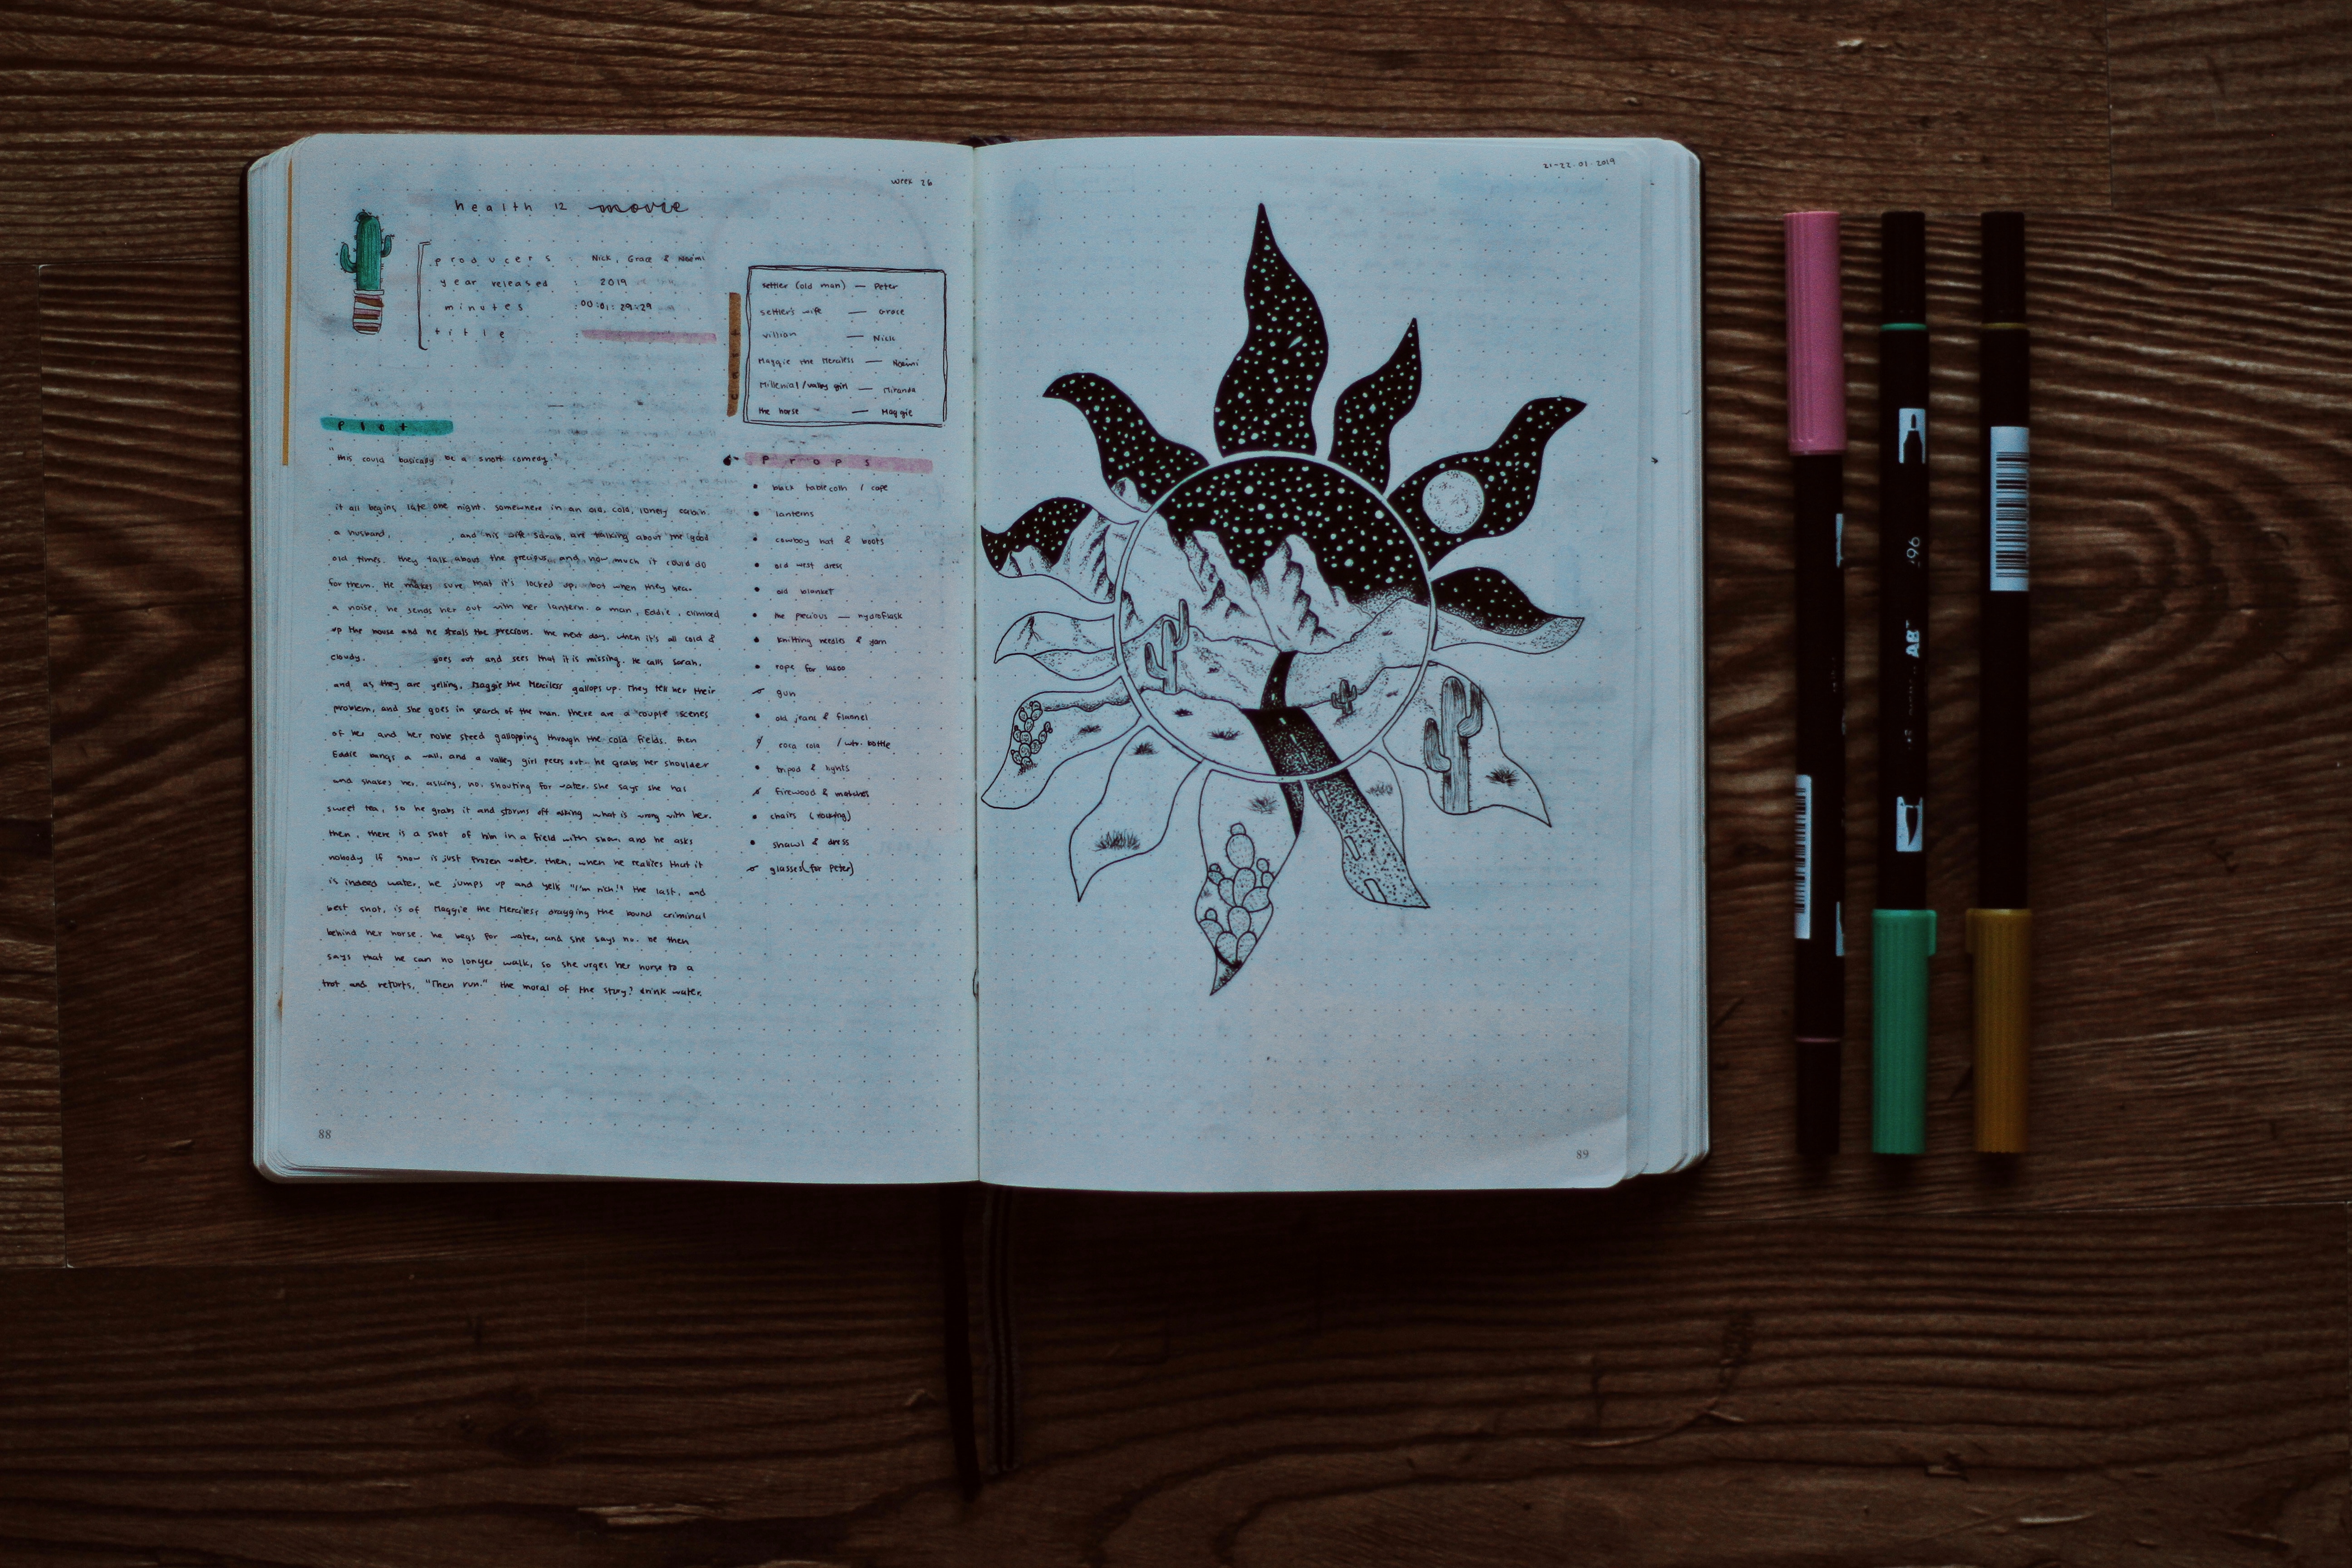 week 26
health 12 movie
producers : Nick, Grace & Noémi
year released : 2019
minutes : 00:01:29:29
title :
cast
settler (old man) — Peter
settler's wife — Grace
villian — Nick
Maggie the Merciless — Noémi
Millenial/valley girl — Miranda
the horse — Maggie
plot
"this could basically be a short comedy."
it all begins late one night. somewhere in an old, cold, lonely cabin.
a husband, and his wife Sarah, are talking about the good
old times. they talk about the precious, and how much it could do
for them. He makes sure that it's locked up, but when they hear
a noise, he sends her out with her lantern. a man, Eddie, climbed
up the house and he steals the precious. the next day, when it's all cold &
cloudy, goes out and sees that it is missing. He calls Sarah,
and as they are yelling, Maggie the Merciless gallops up. They tell her their
problem, and she goes in search of the man. there are a couple scenes
of her and her noble steed gallopping through the cold fields. then
Eddie bangs a wall, and a valley girl peers out. he grabs her shoulder
and shakes her, asking, no, shouting for water. she says she has
sweet tea, so he grabs it and storms off asking what is wrong with her.
then, there is a shot of him in a field with snow, and he asks
nobody if snow is just frozen water. then, when he realizes that it
is indeed water, he jumps up and yells "I'm rich!" the last, and
best shot, is of Maggie the Merciless dragging the bound criminal
behind her horse. he begs for water, and she says no. he then
says that he can no longer walk, so she urges her horse to a
trot and retorts, "Then run." the moral of the story? drink water.
props
black tablecloth / cape
lanterns
cowboy hat & boots
old west dress
old blanket
the precious — hydroflask
knitting needles & yarn
rope for lasso
gun
old jeans & flannel
coca cola / wtr. bottle
tripod & lights
firewood & matches
chairs (rocking)
shawl & dress
glasses (for Peter)
88
21-22.01.2019
89
196
ABT